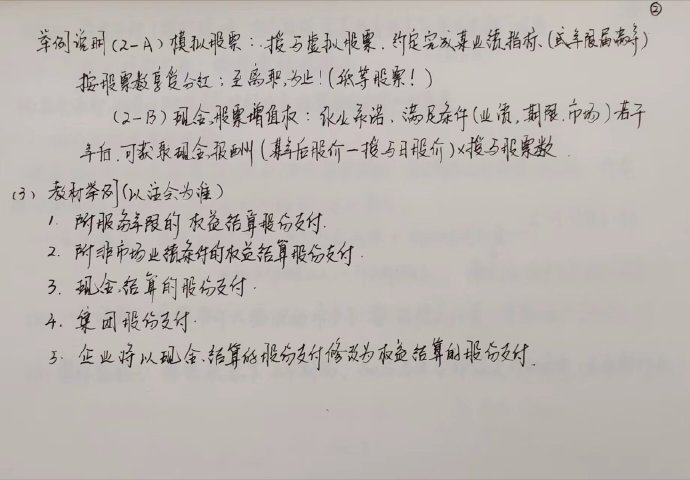 ②
举例说明(2-A) 模拟股票:授与虚拟股票,约定完成某业绩指标,(或年限届满等)
按股票数享受分红;至离职为止!(纸等股票!)
(2-B) 现金股票增值权:企业承诺,满足条件(业绩,期限,市场)若干
年后,可获取现金报酬(某年后股价-授与日股价)×授与股票数
(3) 教材举例(以注会为准)
1. 附服务年限的权益结算股份支付.
2. 附非市场业绩条件的权益结算股份支付.
3. 现金结算的股份支付.
4. 集团股份支付.
5. 企业将以现金结算的股份支付修改为权益结算的股份支付.